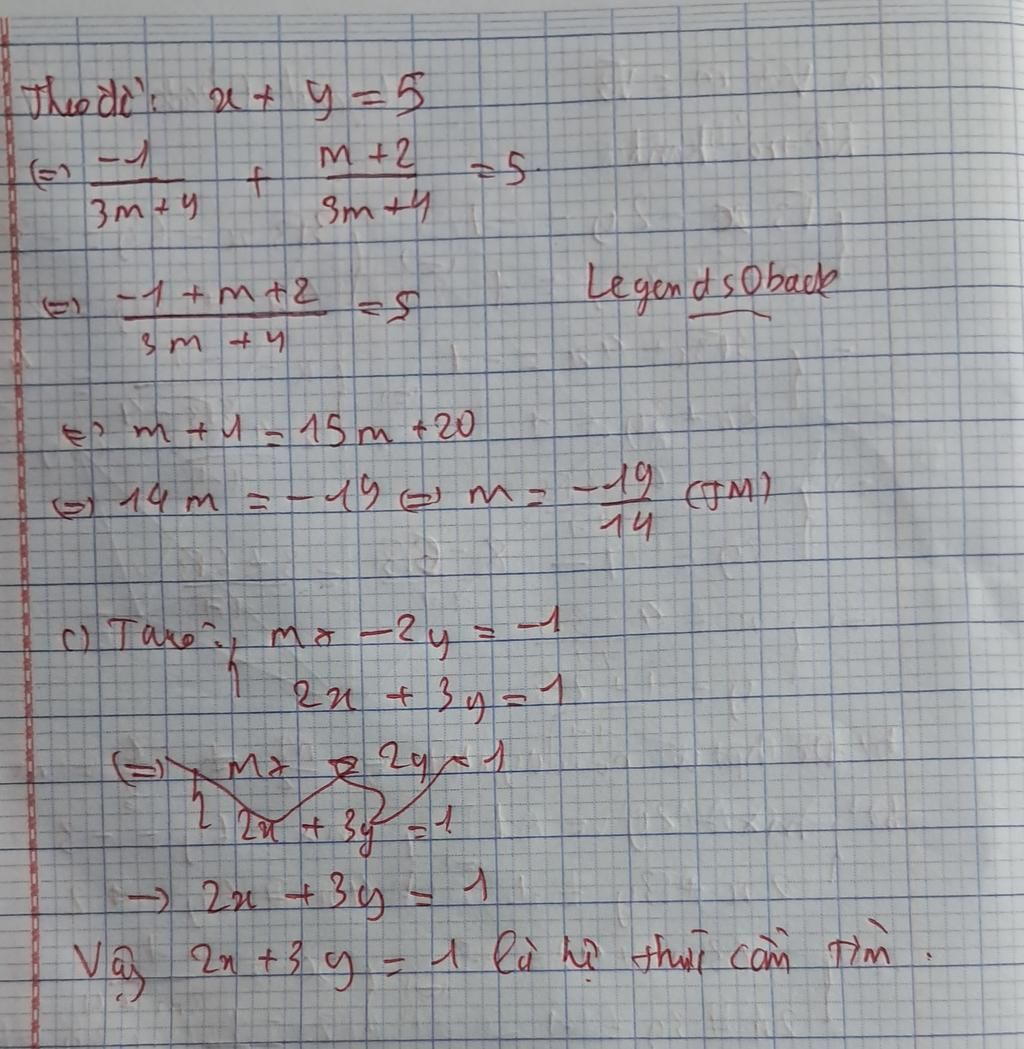 Theo đề: x + y = 5
⇔ -1/(3m+4) + (m+2)/(3m+4) = 5
⇔ (-1+m+2)/(3m+4) = 5
Legends0back
⇔ m + 1 = 15m + 20
⇔ 14m = -19 ⇔ m = -19/14 (TM)
c) Ta có: { mx - 2y = -1
2x + 3y = 1
→ 2x + 3y = 1
Vậy 2x + 3y = 1 là hệ thức cần tìm.